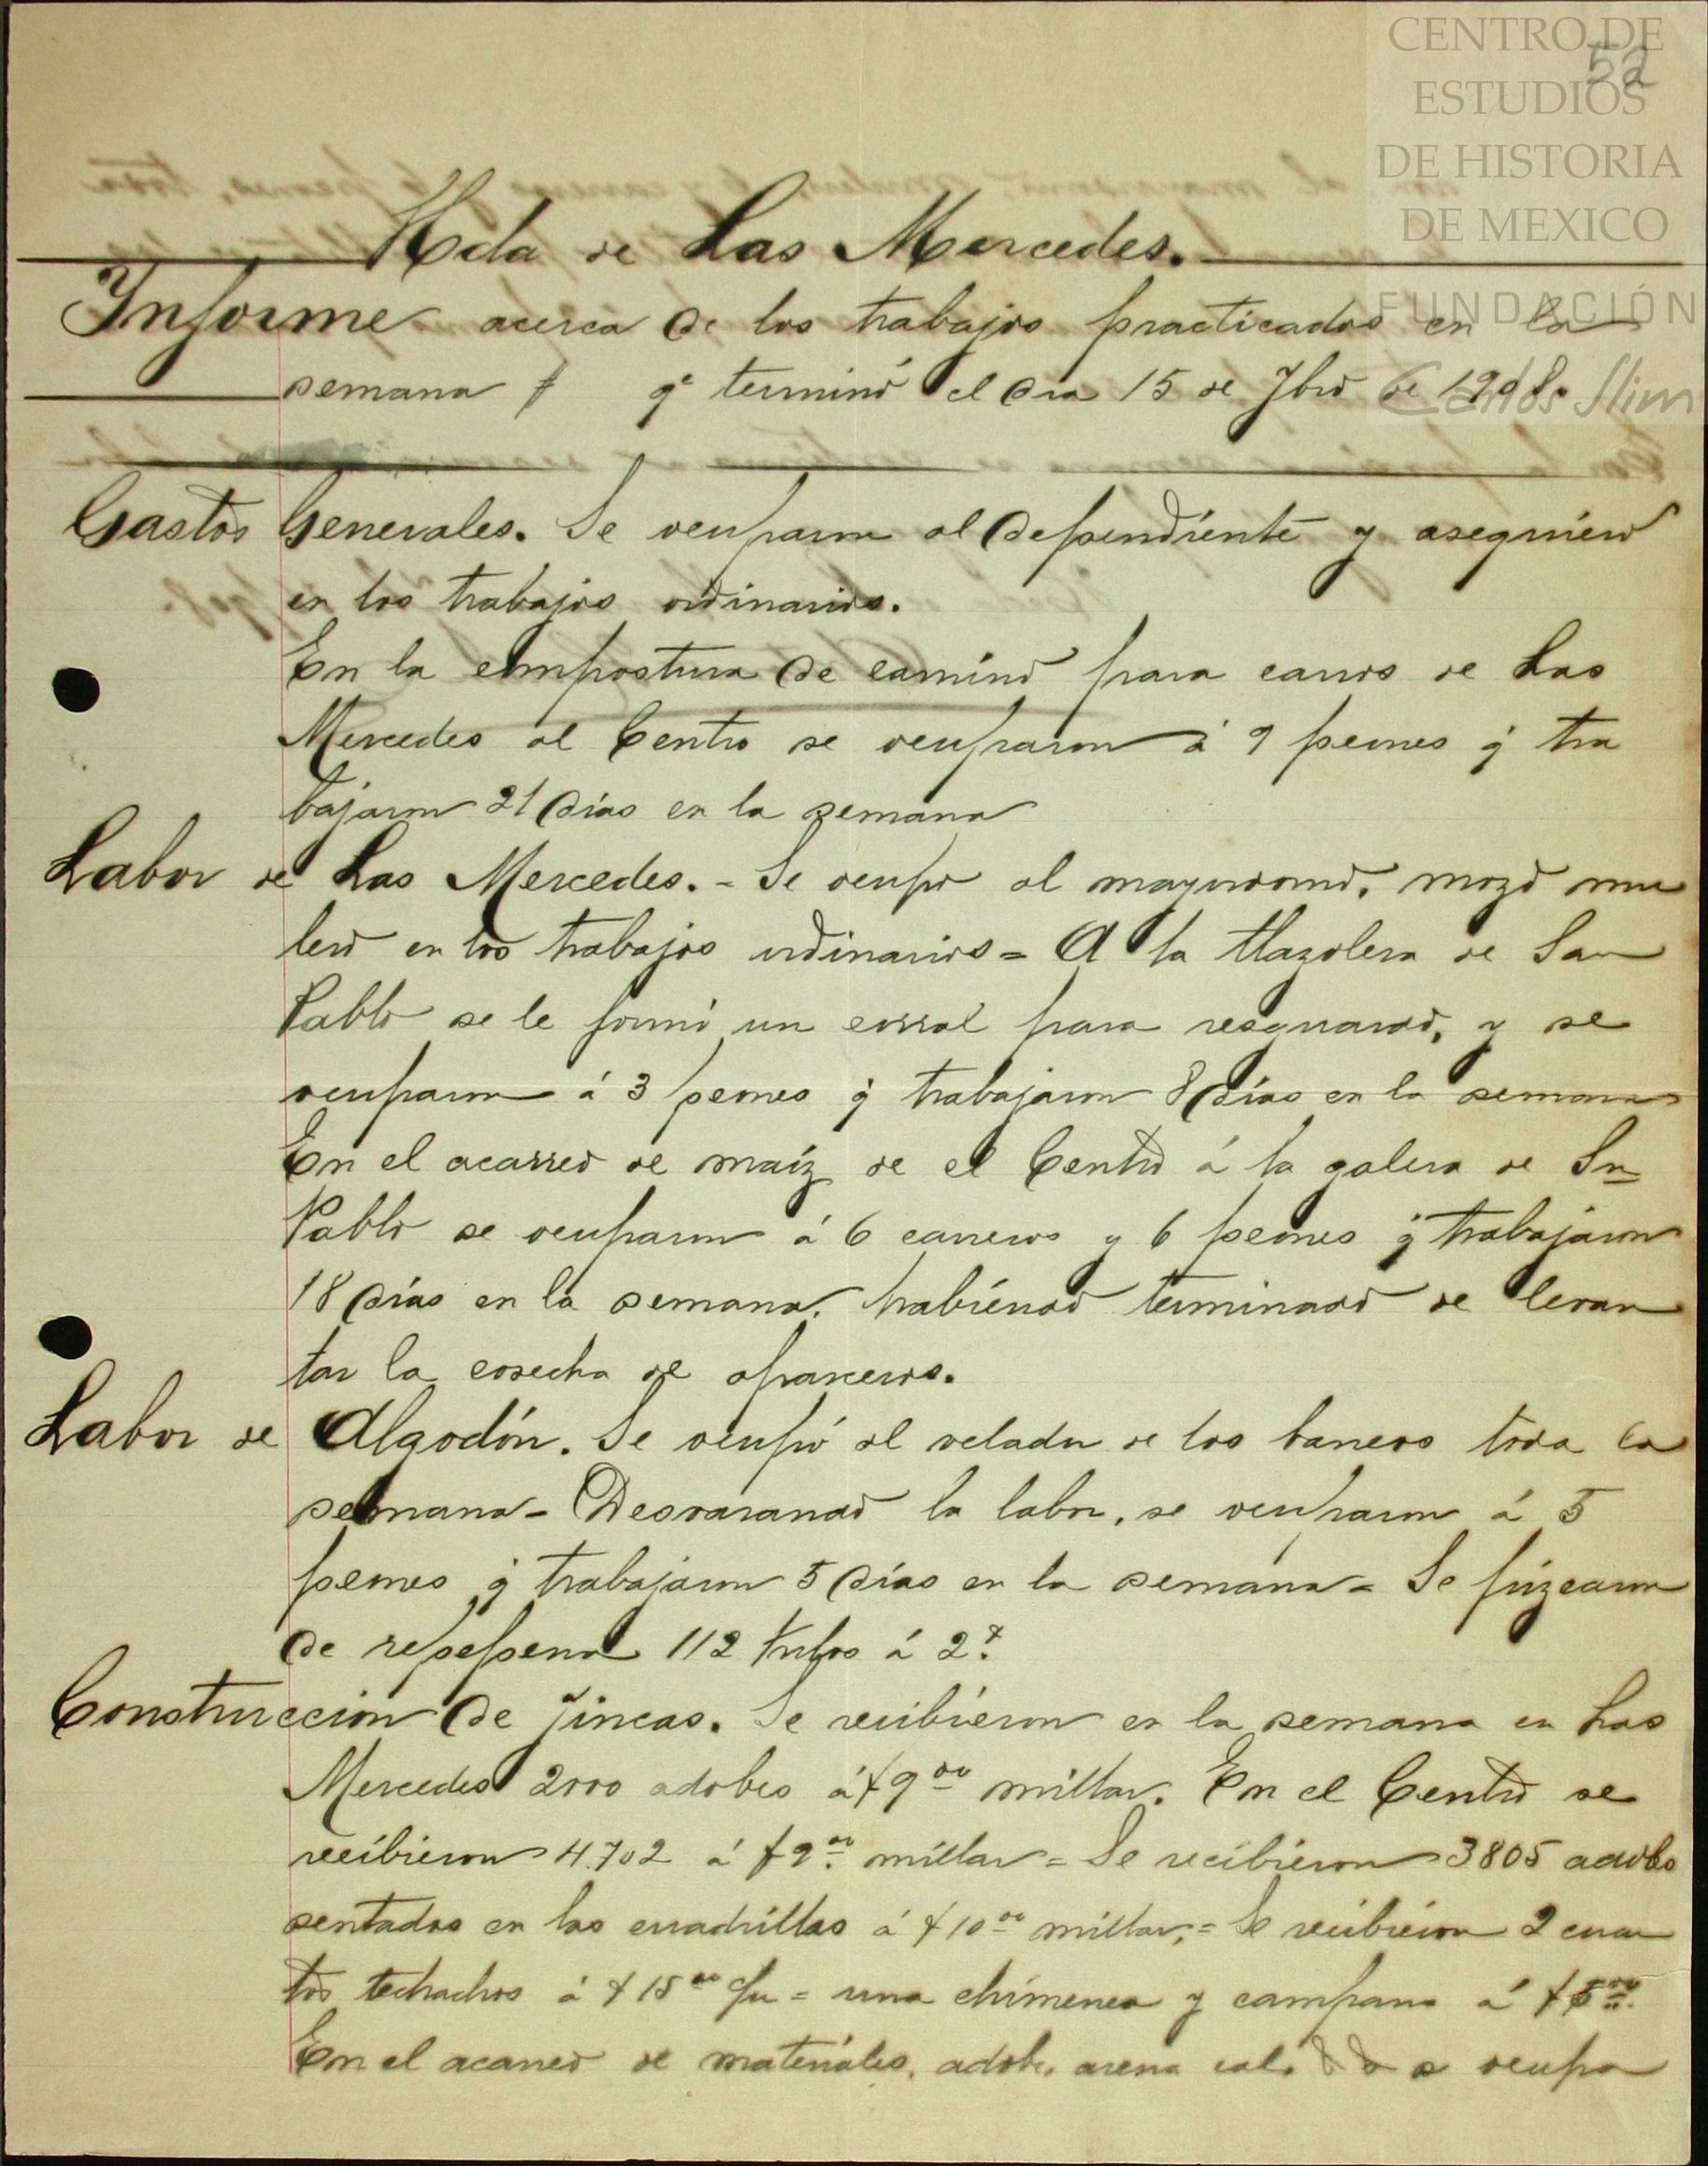 CENTRO DE
ESTUDIOS
DE HISTORIA
DE MEXICO
FUNDACIÓN
Carlos Slim
52
Hda de Las Mercedes.
Informe acerca de los trabajos practicados en la
semana qe terminó el dia 15 de 7bro de 1908.
Gastos Generales. Se ocuparon al dependiente y asequiero
en los trabajos ordinarios.
En la compostura de camino para carros de Las
Mercedes al Centro se ocuparon á 9 peones q̇ tra
bajaron 21 dias en la semana
Labor de Las Mercedes. - Se ocupó al mayordomo, mozo mu
lero en los trabajos ordinarios = A la tlazolera de San
Pablo se le formó un corral para resguardo, y se
ocuparon á 3 peones q̇ trabajaron 8 días en la semana
En el acarreo de maíz de el Centro á la galera de Sn
Pablo se ocuparon á 6 carreros y 6 peones q̇ trabajaron
18 días en la semana, habiéndo terminado de levan
tar la cosecha de aparceros.
Labor de Algodón. Se ocupó al velador de los bancos toda la
semana - Desvaranado la labor, se ocuparon á 5
peones q̇ trabajaron 5 días en la semana = Se pizcaron
de repepena 112 Kilos á 2
Construccion de fincas. Se recibieron en la semana en Las
Mercedes 2000 adobes á $9.00 millar. En el Centro se
recibieron 4.702 á $9.00 millar = Se recibieron 3805 adobes
sentados en las cuadrillas á $10.00 millar, = Se recibieron 2 cuar
tos techados á $15.00 c/u = una chimenea y campana á $5.00
En el acarreo de materiales, adobe, arena cal. & & se ocupa